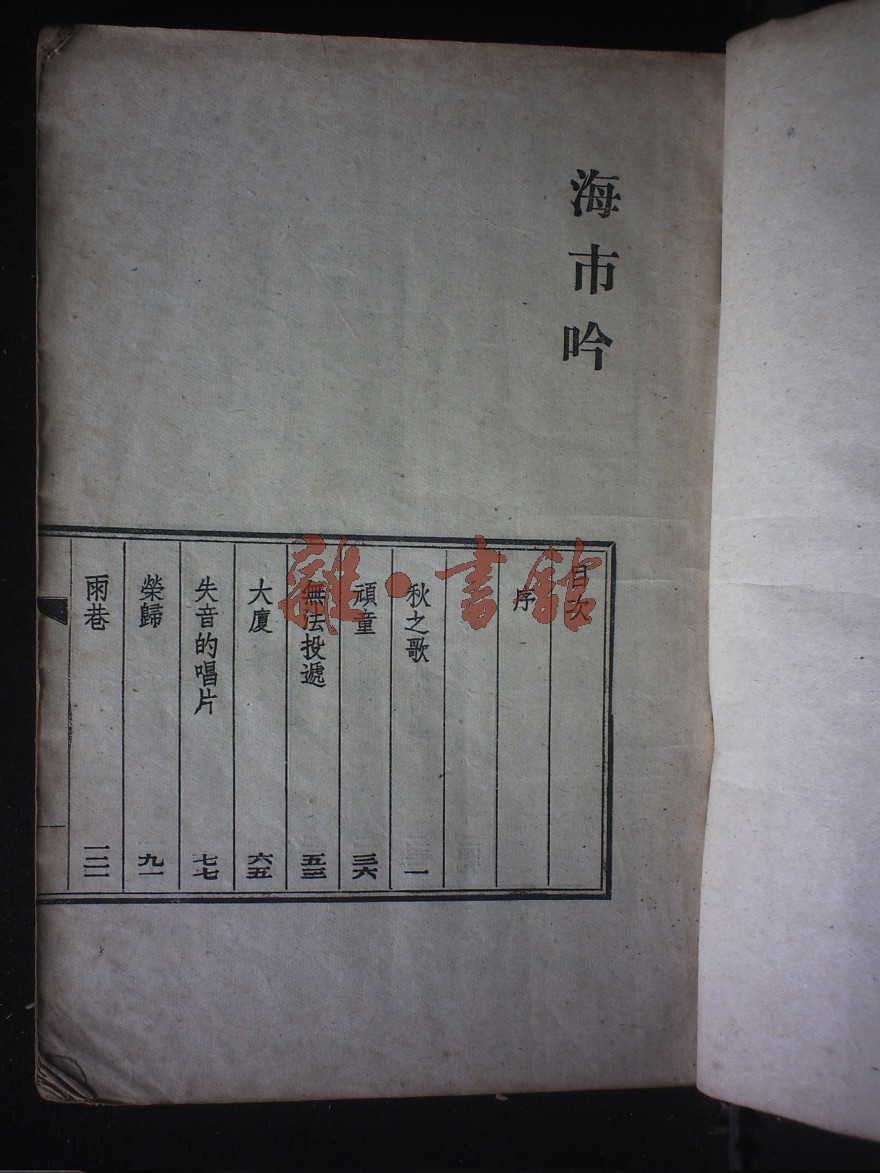 海市吟
目次
序
秋之歌 一
頑童 三六
無法投遞 五三
大廈 六五
失音的唱片 七七
榮歸 九一
雨巷
雜·書館